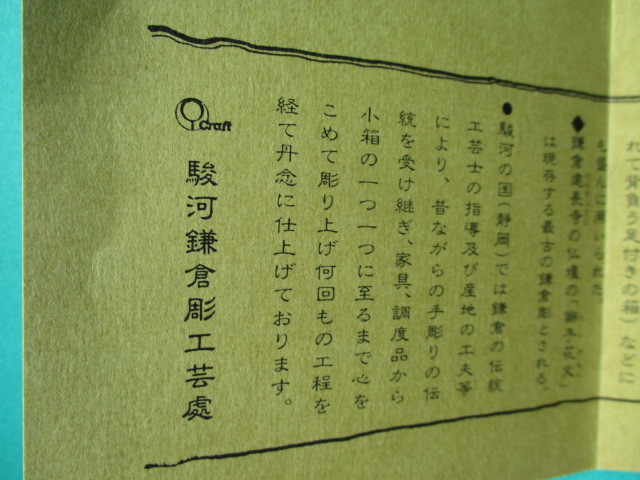 れて背負う足付きの箱）などに
も盛んに用いられた
◆鎌倉建長寺の仏壇の「獅子・花文」
は現存する最古の鎌倉彫とされる。
●駿河の国（静岡）では鎌倉の伝統
工芸士の指導及び産地の工夫等
により、昔ながらの手彫りの伝
統を受け継ぎ、家具、調度品から
小箱の一つ一つに至るまで心を
こめて彫り上げ何回もの工程を
経て丹念に仕上げております。
Craft
駿河鎌倉彫工芸處